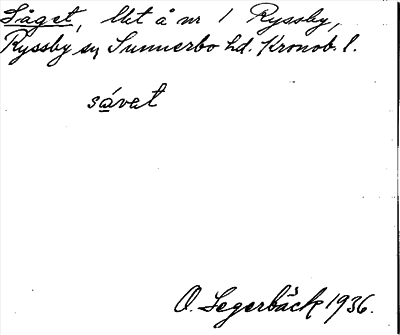 Såget, lht å nr 1 Ryssby,
Ryssby sn Sunnerbo hd. Kronob. l.
såvat
O. Segerbäck 1936.